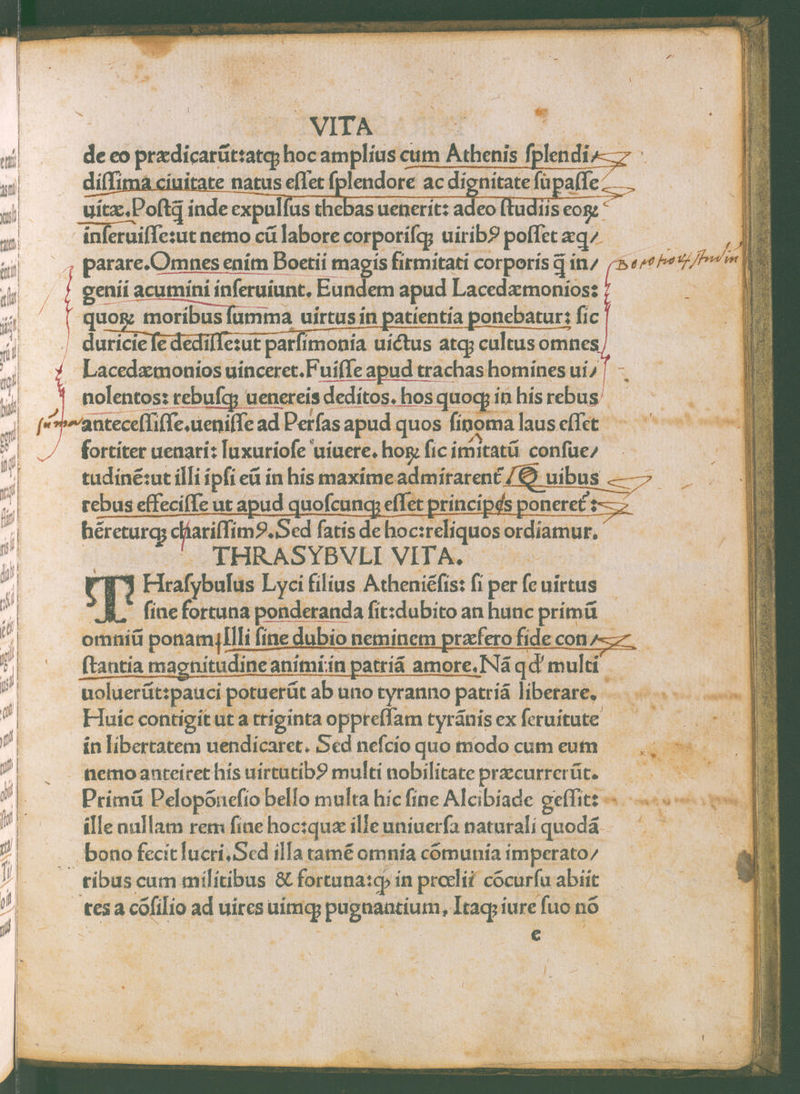 VITA
de eo prædicarūt:atq; hoc amplius cum Athenis ſplendi⸗
diſſima ciuitate natus eſſet ſplendore ac dignitate ſūpaſſe
uitæ. Poſtq̄ inde expulſus thebas uenerit: adeo ſtudiis eoꝝ
inſeruiſſe:ut nemo cū labore corporiſq; uirib⁹ poſſet æq⸗
parare. Omnes enim Boetii magis firmitati corporis q̄ in⸗
genii acumini inſeruiunt. Eundem apud Lacedæmonios:
quoꝝ moribus ſumma uirtus in patientia ponebatur: ſic
duricie ſe dediſſe:ut parſimonia uictus atq; cultus omnes
Lacedæmonios uinceret. Fuiſſe apud trachas homines ui⸗
nolentos: rebuſq; uenereis deditos. hos quoq; in his rebus
anteceſſiſſe. ueniſſe ad Perſas apud quos ſinoma laus eſſet
fortiter uenari: luxurioſe uiuere. hoꝝ ſic imitatū conſue⸗
tudinē:ut illi ipſi eū in his maxime admirarent᷑ / Quibus
rebus effeciſſe ut apud quoſcunq; eſſet princípes poneret᷑:
héreturq; chariſſim⁹. Sed ſatis de hoc:reliquos ordiamur.
THRASYBVLI VITA.
THraſybulus Lyci filius Atheniēſis: ſi per ſe uirtus
ſine fortuna ponderanda ſit:dubito an hunc primū
omniū ponam; Illi ſine dubio neminem præfero fide con⸗
ſtantia magnitudine animi:in patriā amore. Nā qd' multi
uoluerūt:pauci potuerūt ab uno tyranno patriā liberare.
Huic contigit ut a triginta oppreſſam tyrānis ex ſeruitute
in libertatem uendicaret. Sed neſcio quo modo cum eum
nemo anteiret his uirtutib⁹ multi nobilitate præcurrerūt.
Primū Pelopōneſio bello multa hic ſine Alcibiade geſſit:
ille nullam rem ſine hoc:quæ ille uniuerſa naturali quodā
bono fecit lucri. Sed illa tamē omnia cōmunia imperato⸗
ribus cum militibus & fortuna:q̄ in prœlii cōcurſu abiit
res a cōſilio ad uires uimq; pugnantium, Itaq; iure ſuo nō
e